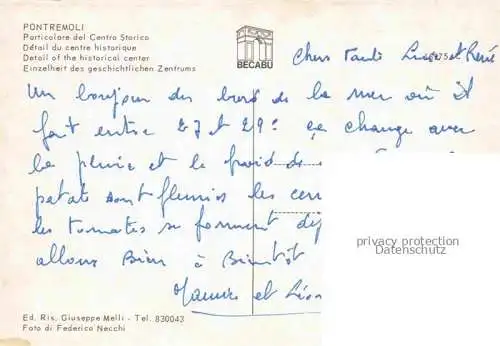 PONTREMOLI
Particolare del Centro Storico
Détail du centre historique
Detail of the historical center
Einzelheit des geschichtlichen Zentrums
BECABÙ
Chers Tante et René
Un bonjour du bord de la mer où il
fait entre 27 et 29° ça change avec
la pluie et le froid de
patate sont fleuries les
les tomates se forment
allons Bien à Bientôt
et
privacy protection
Datenschutz
Ed. Ris. Giuseppe Melli - Tel. 830043
Foto di Federico Necchi